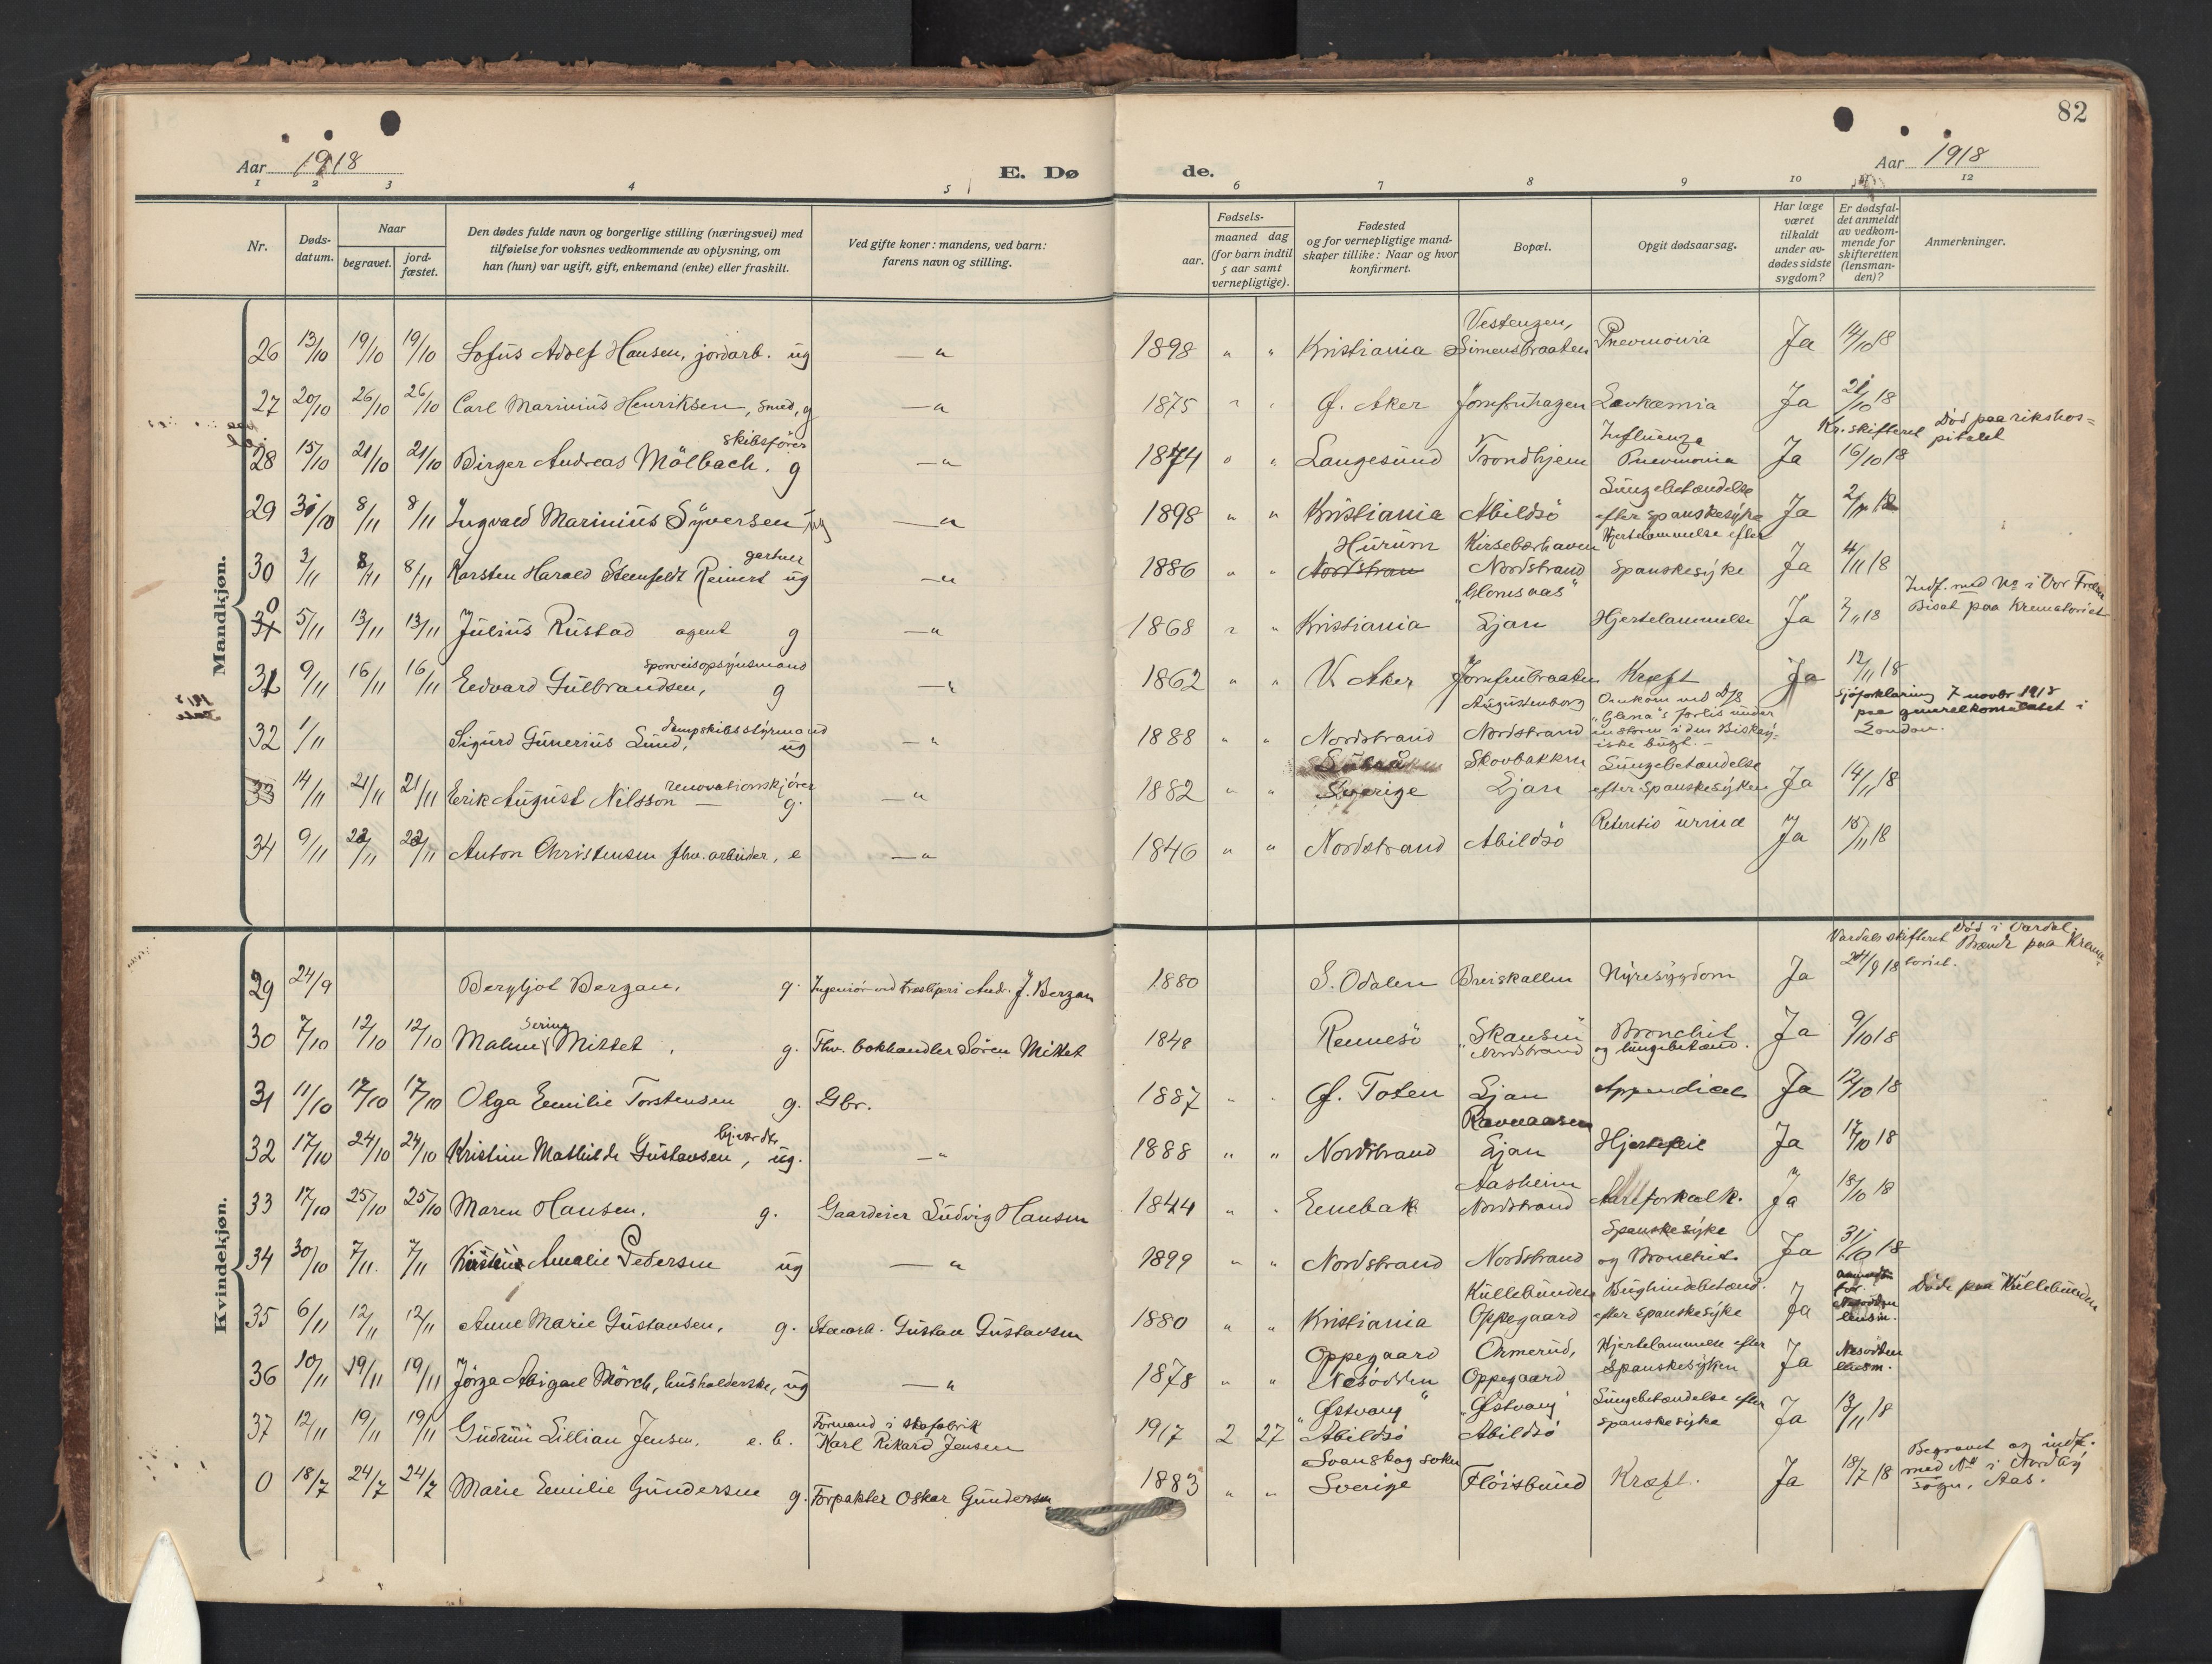 82
Aar 1918
E. Døde.
Aar 1918
1 2 3 4 5 6 7 8 9 10 12
Nr.
Døds-datum.
Naar
begravet.
jord-fæstet.
Den dødes fulde navn og borgerlige stilling (næringsvei) med
tilføielse for voksnes vedkommende av oplysning, om
han (hun) var ugift, gift, enkemand (enke) eller fraskilt.
Ved gifte koner: mandens, ved barn:
farens navn og stilling.
Fødsels-
aar.
maaned dag
(for barn indtil
5 aar samt
vernepligtige).
Fødested
og for vernepligtige mand-
skaper tillike: Naar og hvor
konfirmert.
Bopæl.
Opgit dødsaarsag.
Har læge
været
tilkaldt
under av-
dødes sidste
sygdom?
Er dødsfal-
det anmeldt
av vedkom-
mende for
skifteretten
(lensman-
den)?
Anmerkninger.
Mandkjøn.
26 13/10 19/10 19/10 Sofus Adolf Hansen, jordarb. ug — " 1898 " " Kristiania Vestengen, Simensbraaten Pnevmonia Ja 14/10 18
27 20/10 26/10 26/10 Carl Marinius Henriksen, smed, g — " 1875 " " Ø. Aker Jomfruhagen Levkæmia Ja 21/10 18
28 15/10 21/10 21/10 Birger Andreas Mölbach, skibsfører g — " 1874 " " Langesund Trondhjem Influenza Pnevmonia Ja Kr. skifteret 16/10 18 Död paa rikshospitalet
29 31/10 8/11 8/11 Ingvald Marinius Syversen ug — " 1898 " " Kristiania Abildsö Lungebetændelse efter spanskesyke Ja 2/11 18
30 3/11 8/11 8/11 Karsten Harald Steenfeldt Reinert gartner ug — " 1886 " " Hurum Nordstran Kirsebærhaven Nordstrand Hjertelammelse efter spanskesyke Ja 4/11 18
0 31 5/11 13/11 13/11 Julius Rustad agent g — " 1868 " " Kristiania "Glomsaas" Ljan Hjertelammelse Ja 7/11 18 Indf. med No i Vor Frelser Bisat paa Krematoriet
31 9/11 16/11 16/11 Edvard Gulbrandsen, sporveisopsynsmand g — " 1862 " " V. Aker Jomfrubraaten Kræft Ja 12/11 18
32 1/11 Sigurd Gunerius Lund, dampskibsstyrmand ug — " 1888 " " Nordstrand Augustenborg Nordstrand Omkom ved D/S "Glena"s forlis under en storm i den Biskayiske bugt. — Sjöforklaring 7 novbr 1918 paa generalkonsulatet i London.
33 14/11 21/11 21/11 Erik August Nilsson — renovationskjörer g. — " 1882 " " Sverige Skovbakken Ljan Lungebetændelse efter spanskesyken Ja 14/11 18
34 9/11 22/11 22/11 Anton Christensen fhv. arbeider, e — " 1846 " " Nordstrand Abildsö Retentio urinæ Ja 15/11 18
Kvindekjøn.
29 24/9 Bergljot Bergan, g. Ingeniör ved træsliperi Andr. J. Bergan 1880 S. Odalen Breiskallen Nyresygdom Ja Vardals skifteret 24/9 18 Död i Vardal. Brændt paa Krematoriet.
30 7/10 12/10 12/10 Malene Serine Mittet, g. Fhv. bokhandler Sören Mittet 1848 Rennesö "Skansen" Nordstrand Bronchit og lungebetænd. Ja 9/10 18
31 11/10 17/10 17/10 Olga Emilie Torstensen g. Gbr. 1887 " " Ø. Toten Ljan Appendicit Ja 12/10 18
32 17/10 24/10 24/10 Kristine Mathilde Gustavsen, ug. — " 1888 " " Nordstrand Ravnaasen Ljan Hjertefeil Ja 17/10 18
33 17/10 25/10 25/10 Maren Hansen, g. Gaardeier Ludvig Hansen 1844 " " Enebak Aasheim Nordstrand Aareforkalk. Ja 18/10 18
34 30/10 7/11 7/11 Kristine Amalie Pedersen ug — " 1899 " " Nordstrand Nordstrand Spanskesyke og Bronchit Ja 31/10 18
35 6/11 12/11 12/11 Anne Marie Gustavsen, g. Stenarb. Gustav Gustavsen 1880 " " Kristiania Kullebunden Oppegaard Bughindebetænd. efter spanskesyke Ja Nesodden lensm. Döde paa Kullebunden
36 10/11 19/11 19/11 Jörga Abigael Mörch, husholderske, ug — " 1878 " " Oppegaard Nesodden Ormerud, Oppegaard Hjertelammelse efter spanskesyken Ja Nesodden lensm.
37 12/11 19/11 19/11 Gudrun Lillian Jensen, e. b. Formand i skofabrik Karl Rikard Jensen 1917 2 27 "Østvang" Abildsö "Østvang" Abildsö Lungebetændelse efter spanskesyke Ja 13/11 18
0 18/7 24/7 24/7 Marie Emilie Gundersen g. Forpakter Oskar Gundersen 1883 " " Svanskog sokn Sverige Flöisbund Kræft. Ja 18/7 18 Begravet og indf. med No i Nordby sogn, Aas.